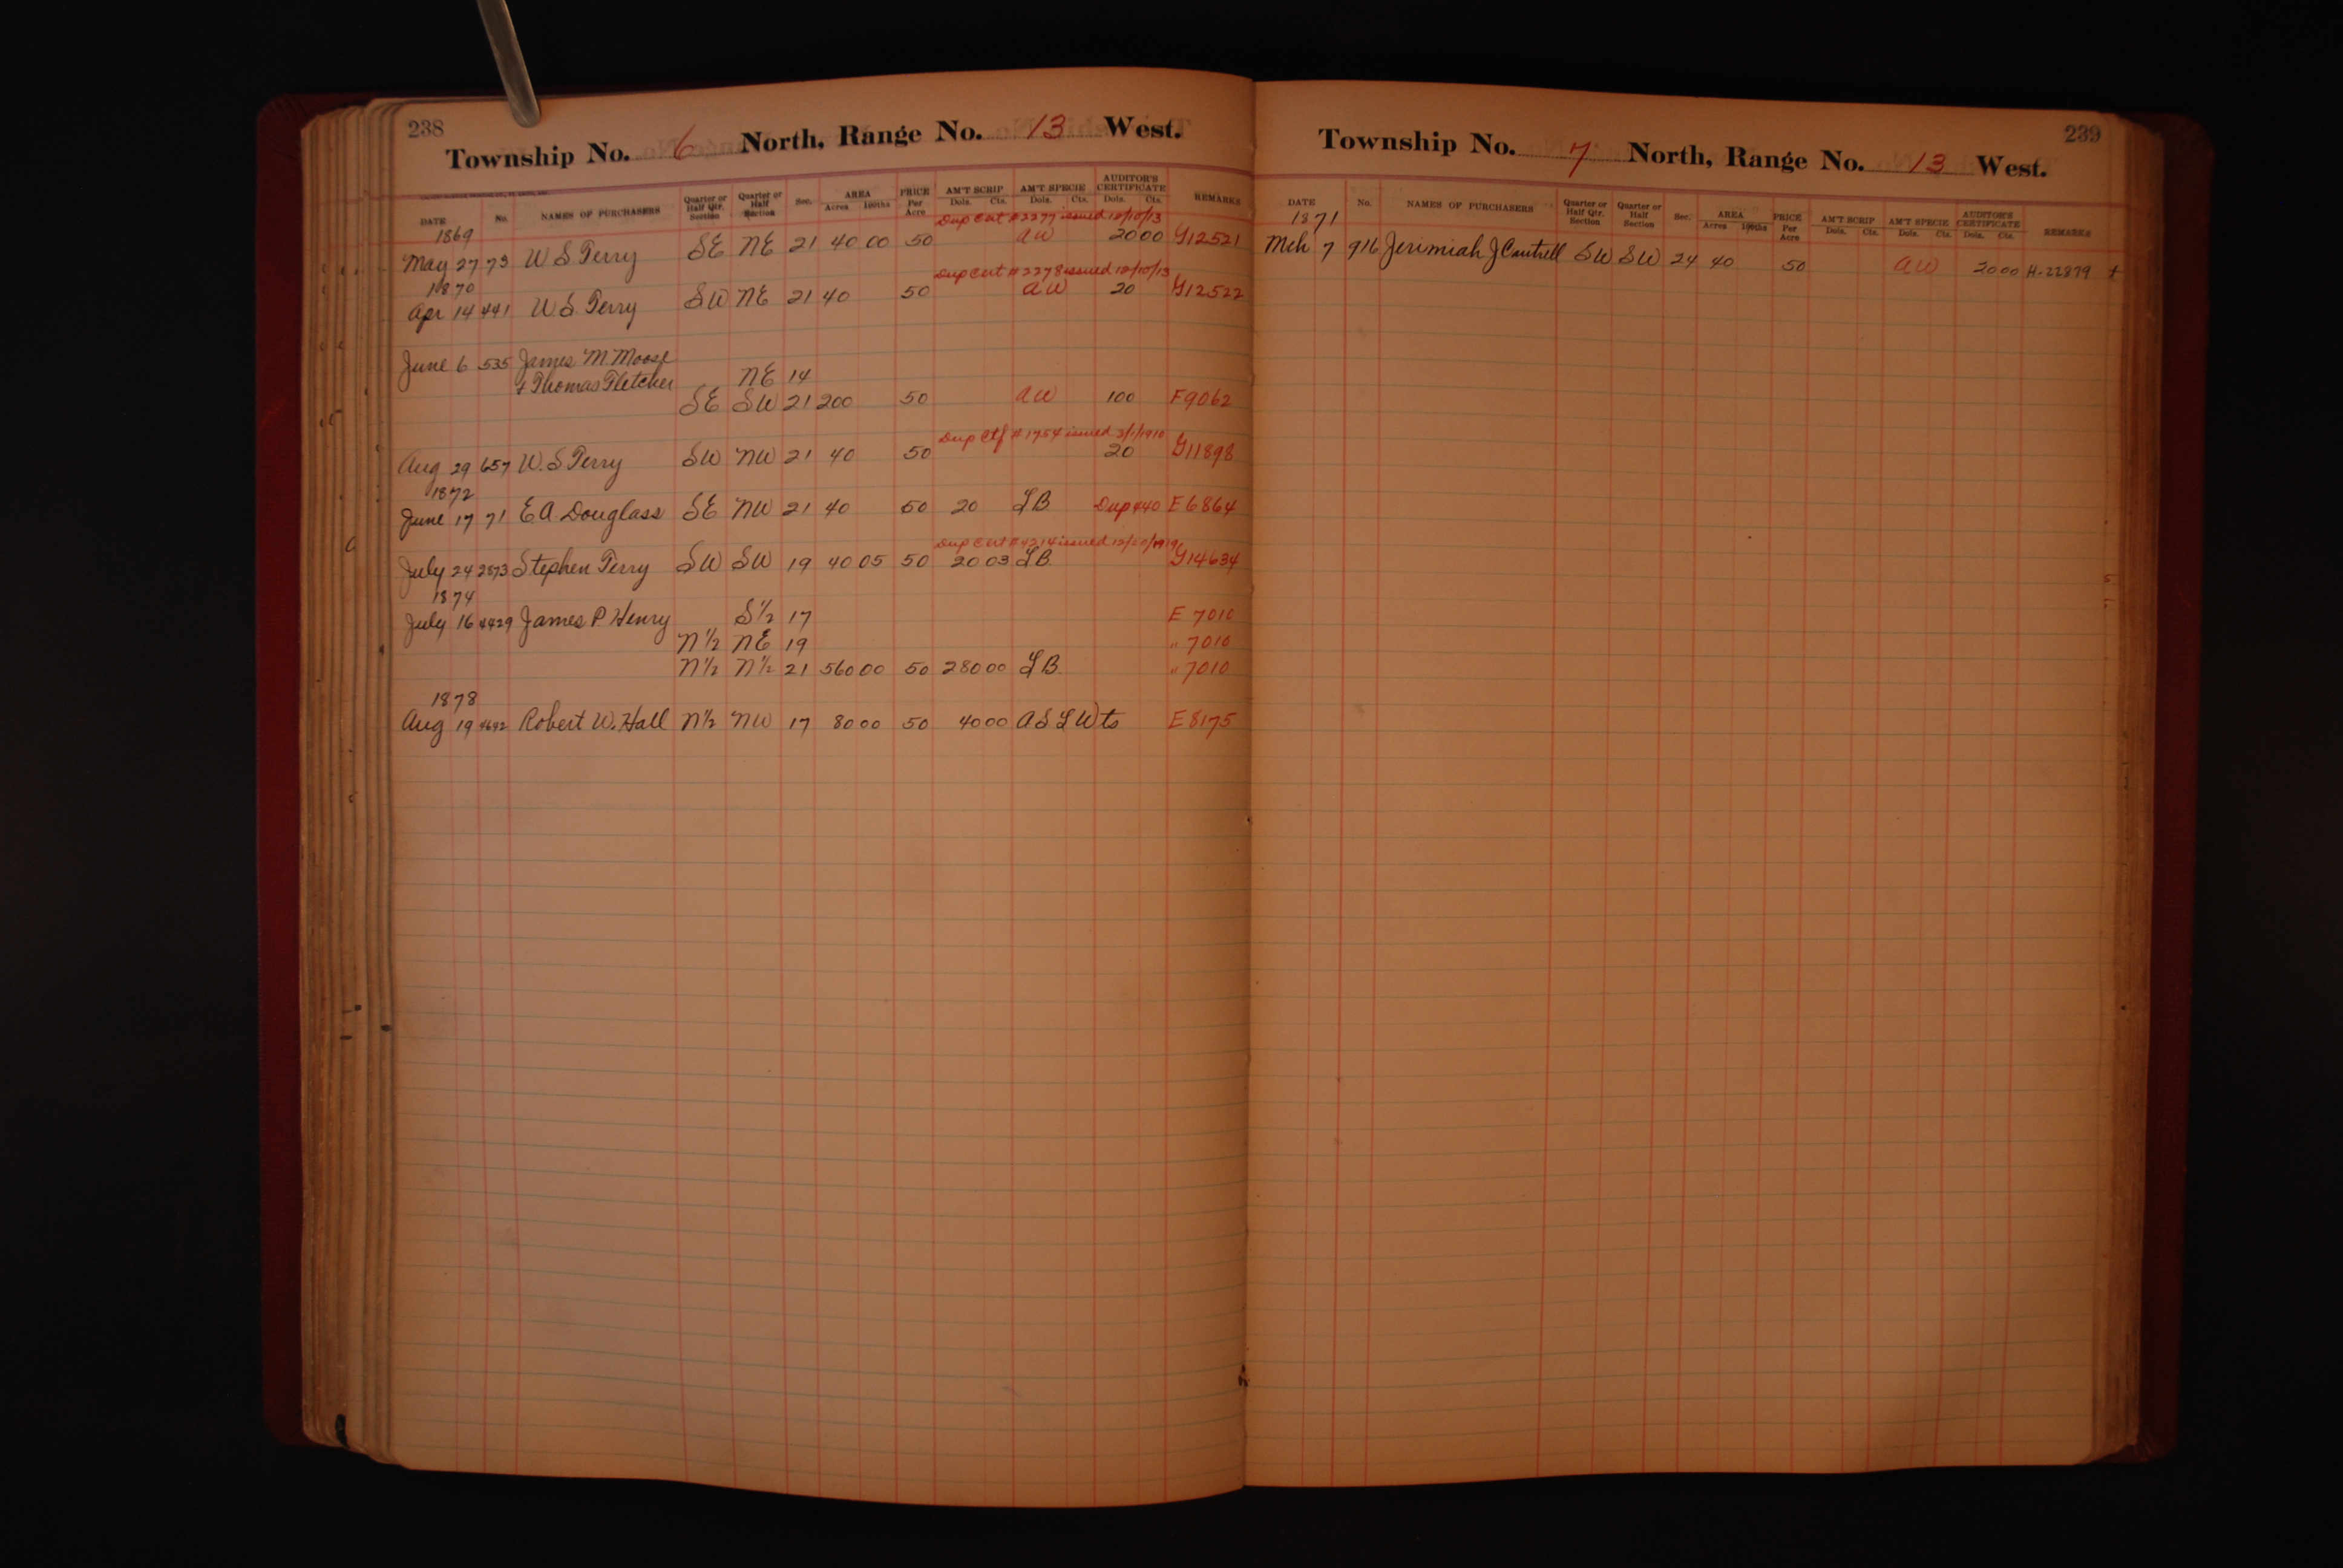 238
Township No. 6 North, Range No. 13 West.
DATE No. NAMES OF PURCHASERS Quarter or Half Qtr. Section Quarter or Half Section Sec. AREA Acres 100ths PRICE Per Acre AM'T SCRIP Dols. Cts. AM'T SPECIE Dols. Cts. AUDITOR'S CERTIFICATE Dols. Cts. REMARKS
1869 Dup Cert # 2277 issued 12/10/13
May 27 73 W S Terry SE NE 21 40 00 50 AW 20 00 G12521
1870 Dup Cert # 2278 issued 12/10/13
Apr 14 441 W. S. Terry SW NE 21 40 50 AW 20 G12522
June 6 535 James M Moose
& Thomas Fletcher NE 14
SE SW 21 200 50 AW 100 F9062
Dup Ctf # 1754 issued 3/1/1910
Aug 29 657 W. S Terry SW NW 21 40 50 20 G11898
1872
June 17 71 E A. Douglass SE NW 21 40 50 20 LB Dup 440 E6864
Dup Cert # 4214 issued 12/20/1919
July 24 2873 Stephen Terry SW SW 19 40 05 50 20 03 LB G14634
1874
July 16 4429 James P Henry S½ 17 E 7010
N½ NE 19 " 7010
N½ N½ 21 560 00 50 280 00 LB " 7010
1878
Aug 19 4692 Robert W. Hall N½ NW 17 80 00 50 40 00 A S L Wts E8175
239
Township No. 7 North, Range No. 13 West.
DATE No. NAMES OF PURCHASERS Quarter or Half Qtr. Section Quarter or Half Section Sec. AREA Acres 100ths PRICE Per Acre AM'T SCRIP Dols. Cts. AM'T SPECIE Dols. Cts. AUDITOR'S CERTIFICATE Dols. Cts. REMARKS
1871
Mch 7 916 Jerimiah J Cantrell SW SW 24 40 50 AW 20 00 H-22879